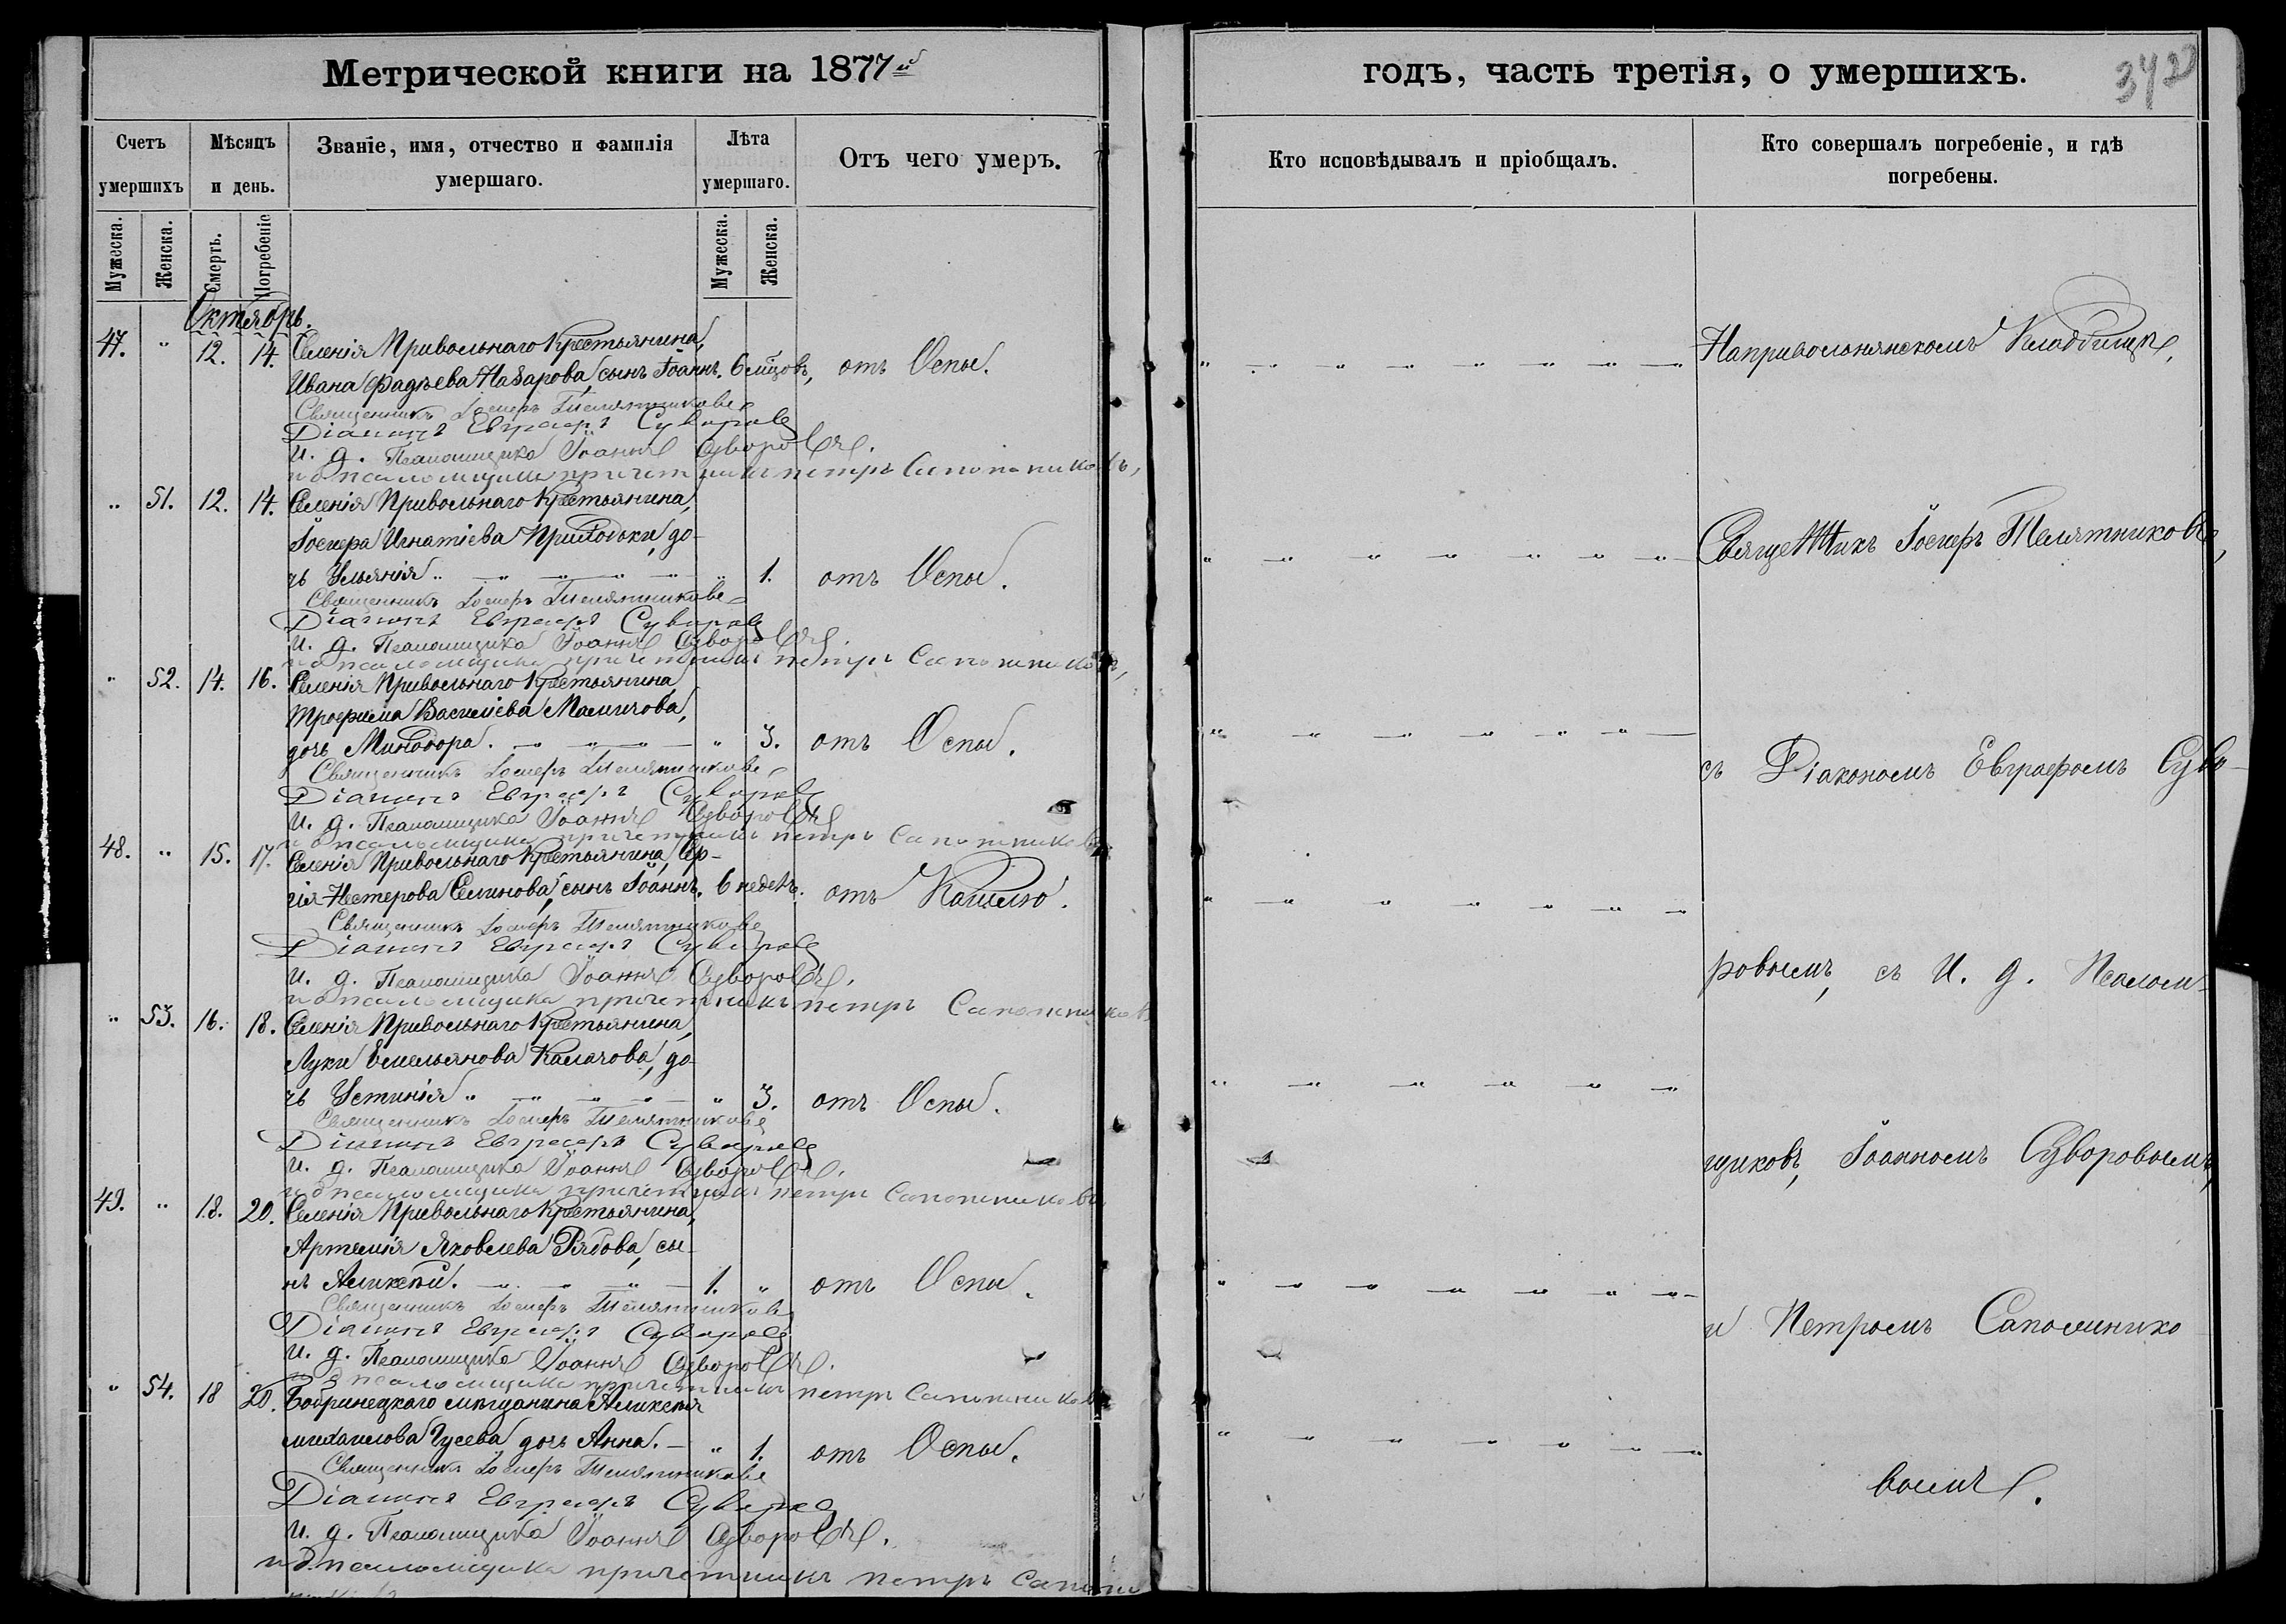 Метрической книги на 1877й
годъ, часть третія, о умершихъ.
342
Счетъ умершихъ
Мѣсяцъ и день.
Званіе, имя, отчество и фамилія умершаго.
Лѣта умершаго.
Отъ чего умеръ.
Кто исповѣдывалъ и пріобщалъ.
Кто совершалъ погребеніе, и гдѣ погребены.
Мужеска.
Женска.
Смерть.
Погребеніе
Мужеска.
Женска.
Октябрь.
47. " 12. 14. Селенія Привольнаго Крестьянина,
Ивана Фадѣева Назарова, сынъ Іоаннъ. 6 мѣцовъ, отъ Оспы.
Священникъ Іосифъ Телятниковъ
Діаконъ Евграфъ Суворовъ
И. д. Псаломщика Іоаннъ Суворовъ.
и д псаломщика причетникъ петръ Сапожниковъ,
" 51. 12. 14. Селенія Привольнаго Крестьянина,
Іосифа Игнатіева Приходьки, до-
чь Ульянія " 1. отъ Оспы.
Священникъ Іосифъ Телятниковъ
Діаконъ Евграфъ Суворовъ
И. д. Псаломщика Іоаннъ Суворовъ.
и д псаломщика причетникъ петръ Сапожниковъ,
" 52. 14. 16. Селенія Привольнаго Крестьянина
Трофима Василіева Мамичова,
дочь Минодора. " 3. отъ Оспы.
Священникъ Іосифъ Телятниковъ
Діаконъ Евграфъ Суворовъ
И. д. Псаломщика Іоаннъ Суворовъ
и д псаломщика причетникъ петръ Сапожниковъ
48. " 15. 17. Селенія Привольнаго Крестьянина, Сер-
гія Нестерова Селинова, сынъ Іоаннъ. 6 недель. отъ Кашлю.
Священникъ Іосифъ Телятниковъ
Діаконъ Евграфъ Суворовъ
И. д. Псаломщика Іоаннъ Суворовъ.
и д псаломщика причетникъ петръ Сапожниковъ
" 53. 16. 18. Селенія Привольнаго Крестьянина,
Луки Емельянова Калачова, до-
чь Устинія " 3. отъ Оспы.
Священникъ Іосифъ Телятниковъ
Діаконъ Евграфъ Суворовъ
И. д. Псаломщика Іоаннъ Суворовъ.
и д псаломщика причетникъ петръ Сапожниковъ
49. " 18. 20. Селенія Привольнаго Крестьянина,
Артемія Яковлева Рябова, сы-
нъ Аликсѣй. 1. " отъ Оспы.
Священникъ Іосифъ Телятниковъ
Діаконъ Евграфъ Суворовъ
И. д. Псаломщика Іоаннъ Суворовъ.
и д псаломщика причетникъ петръ Сапожниковъ
" 54. 18 20. Бобринецкаго мѣщанина Аликсѣя
михаилова Гусева дочь Анна. " 1. отъ Оспы.
Священникъ Іосифъ Телятниковъ
Діаконъ Евграфъ Суворовъ
И. д. Псаломщика Іоаннъ Суворовъ.
и д. псаломщика причетникъ петръ Сапож
На привольнянскомъ Кладбищѣ,
Священникъ Іосифъ Телятниковъ,
съ Діакономъ Евграфомъ Суво-
ровымъ, съ И. д. Псалом-
щиковъ, Іоанномъ Суворовымъ,
и Петромъ Сапожнико
вымъ.